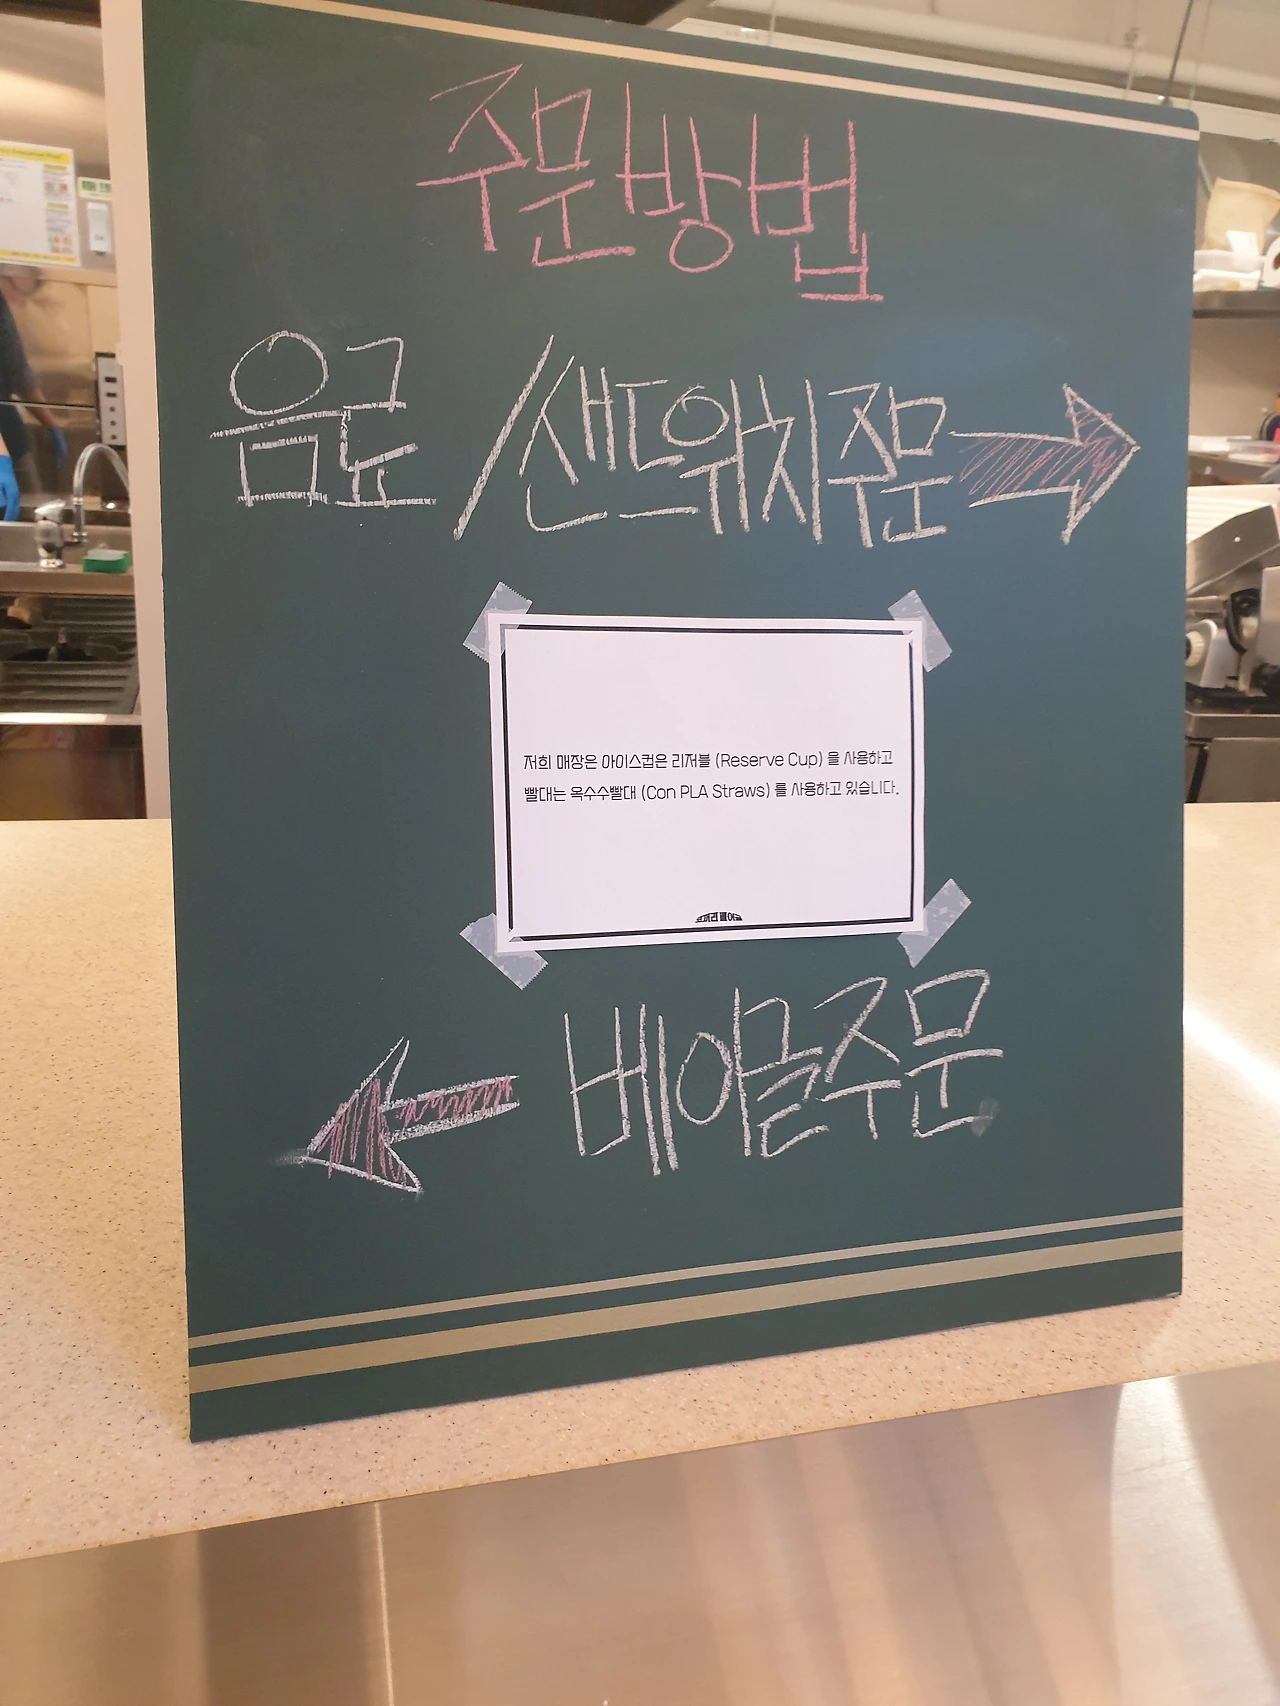 주문방법
음료 / 샌드위치 주문
저희 매장은 아이스컵은 리저블 (Reserve Cup) 을 사용하고
빨대는 옥수수빨대 (Con PLA Straws) 를 사용하고 있습니다.
코끼리 베이글
베이글 주문